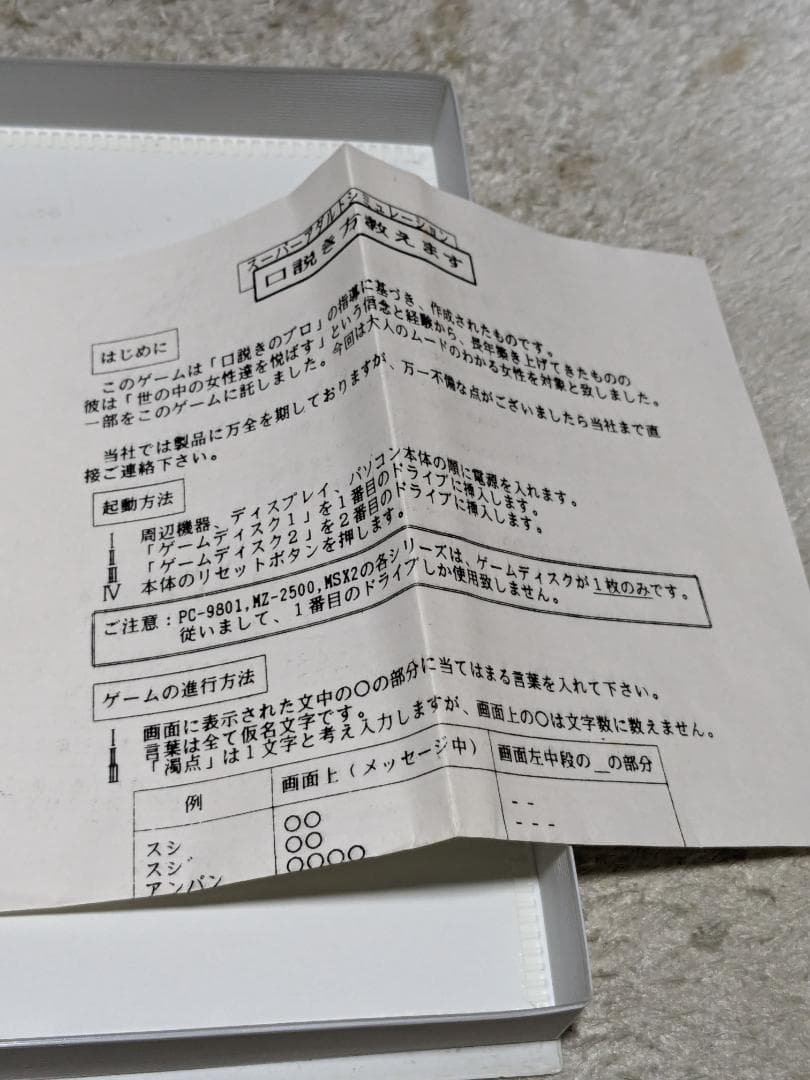 スーパーアダルトシミュレーション
口説き方教えます
はじめに
このゲームは「口説きのプロ」の指導に基づき、作成されたものです。
彼は「世の中の女性達を悦ばす」という信念と経験から、長年築き上げてきたものの
一部をこのゲームに託しました。今回は大人のムードのわかる女性を対象と致しました。
当社では製品に万全を期しておりますが、万一不備な点がございましたら当社まで直
接ご連絡下さい。
起動方法
Ⅰ 周辺機器、ディスプレイ、パソコン本体の順に電源を入れます。
Ⅱ 「ゲームディスク1」を1番目のドライブに挿入します。
Ⅲ 「ゲームディスク2」を2番目のドライブに挿入します。
Ⅳ 本体のリセットボタンを押します。
ご注意：PC-9801,MZ-2500,MSX2の各シリーズは、ゲームディスクが1枚のみです。
従いまして、1番目のドライブしか使用致しません。
ゲームの進行方法
Ⅰ 画面に表示された文中の○の部分に当てはまる言葉を入れて下さい。
Ⅱ 言葉は全て仮名文字です。
Ⅲ 「濁点」は1文字と考え入力しますが、画面上の○は文字数に数えません。
例 画面上(メッセージ中) 画面左中段の＿の部分
スシ ○○ --
スジ ○○ ---
アンパン ○○○○